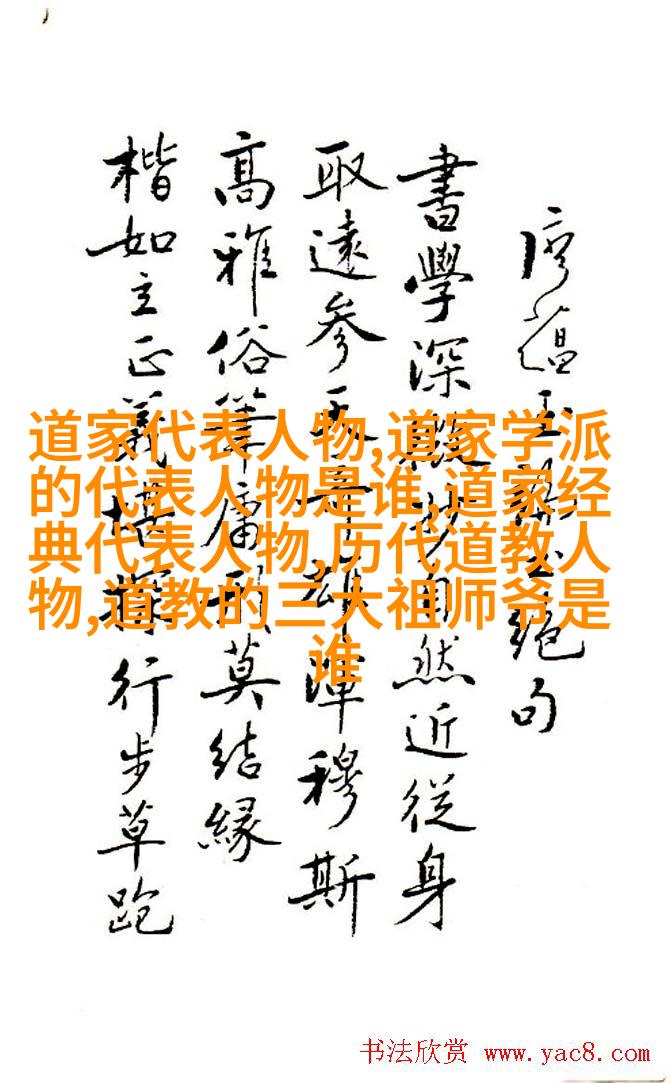 道家代表人物,道家学派
的代表人物是谁,道家经
典代表人物,历代道教人
物,道教的三大祖师爷是
谁
廖蕴玉 絕句
書學深 妙自然近從身
取遠參 雄渾穆斯
高雅俗筆庸 莫結緣
楷如立正 行步草跑
书法欣赏 www.yac8.com